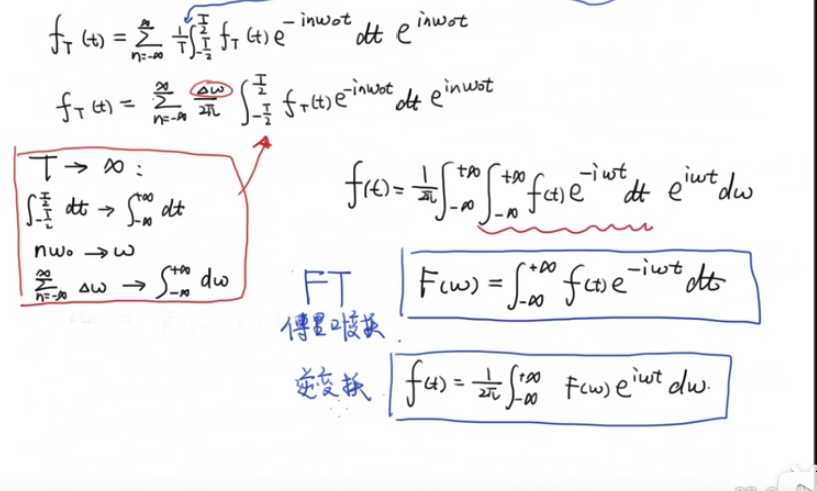 f_T(t) = \sum_{n=-∞}^{∞} \frac{1}{T} \int_{-\frac{T}{2}}^{\frac{T}{2}} f_T(t) e^{-inω_0t} dt e^{inω_0t}
f_T(t) = \sum_{n=-∞}^{∞} \frac{Δω}{2π} \int_{-\frac{T}{2}}^{\frac{T}{2}} f_T(t) e^{-inω_0t} dt e^{inω_0t}
T → ∞ :
\int_{-\frac{T}{2}}^{\frac{T}{2}} dt → \int_{-∞}^{+∞} dt
nω_0 → ω
\sum_{n=-∞}^{∞} Δω → \int_{-∞}^{+∞} dω
f(t) = \frac{1}{2π} \int_{-∞}^{+∞} \int_{-∞}^{+∞} f(t) e^{-iωt} dt e^{iωt} dω
FT F(ω) = \int_{-∞}^{+∞} f(t) e^{-iωt} dt
变换
逆变换 f(t) = \frac{1}{2π} \int_{-∞}^{+∞} F(ω) e^{iωt} dω.